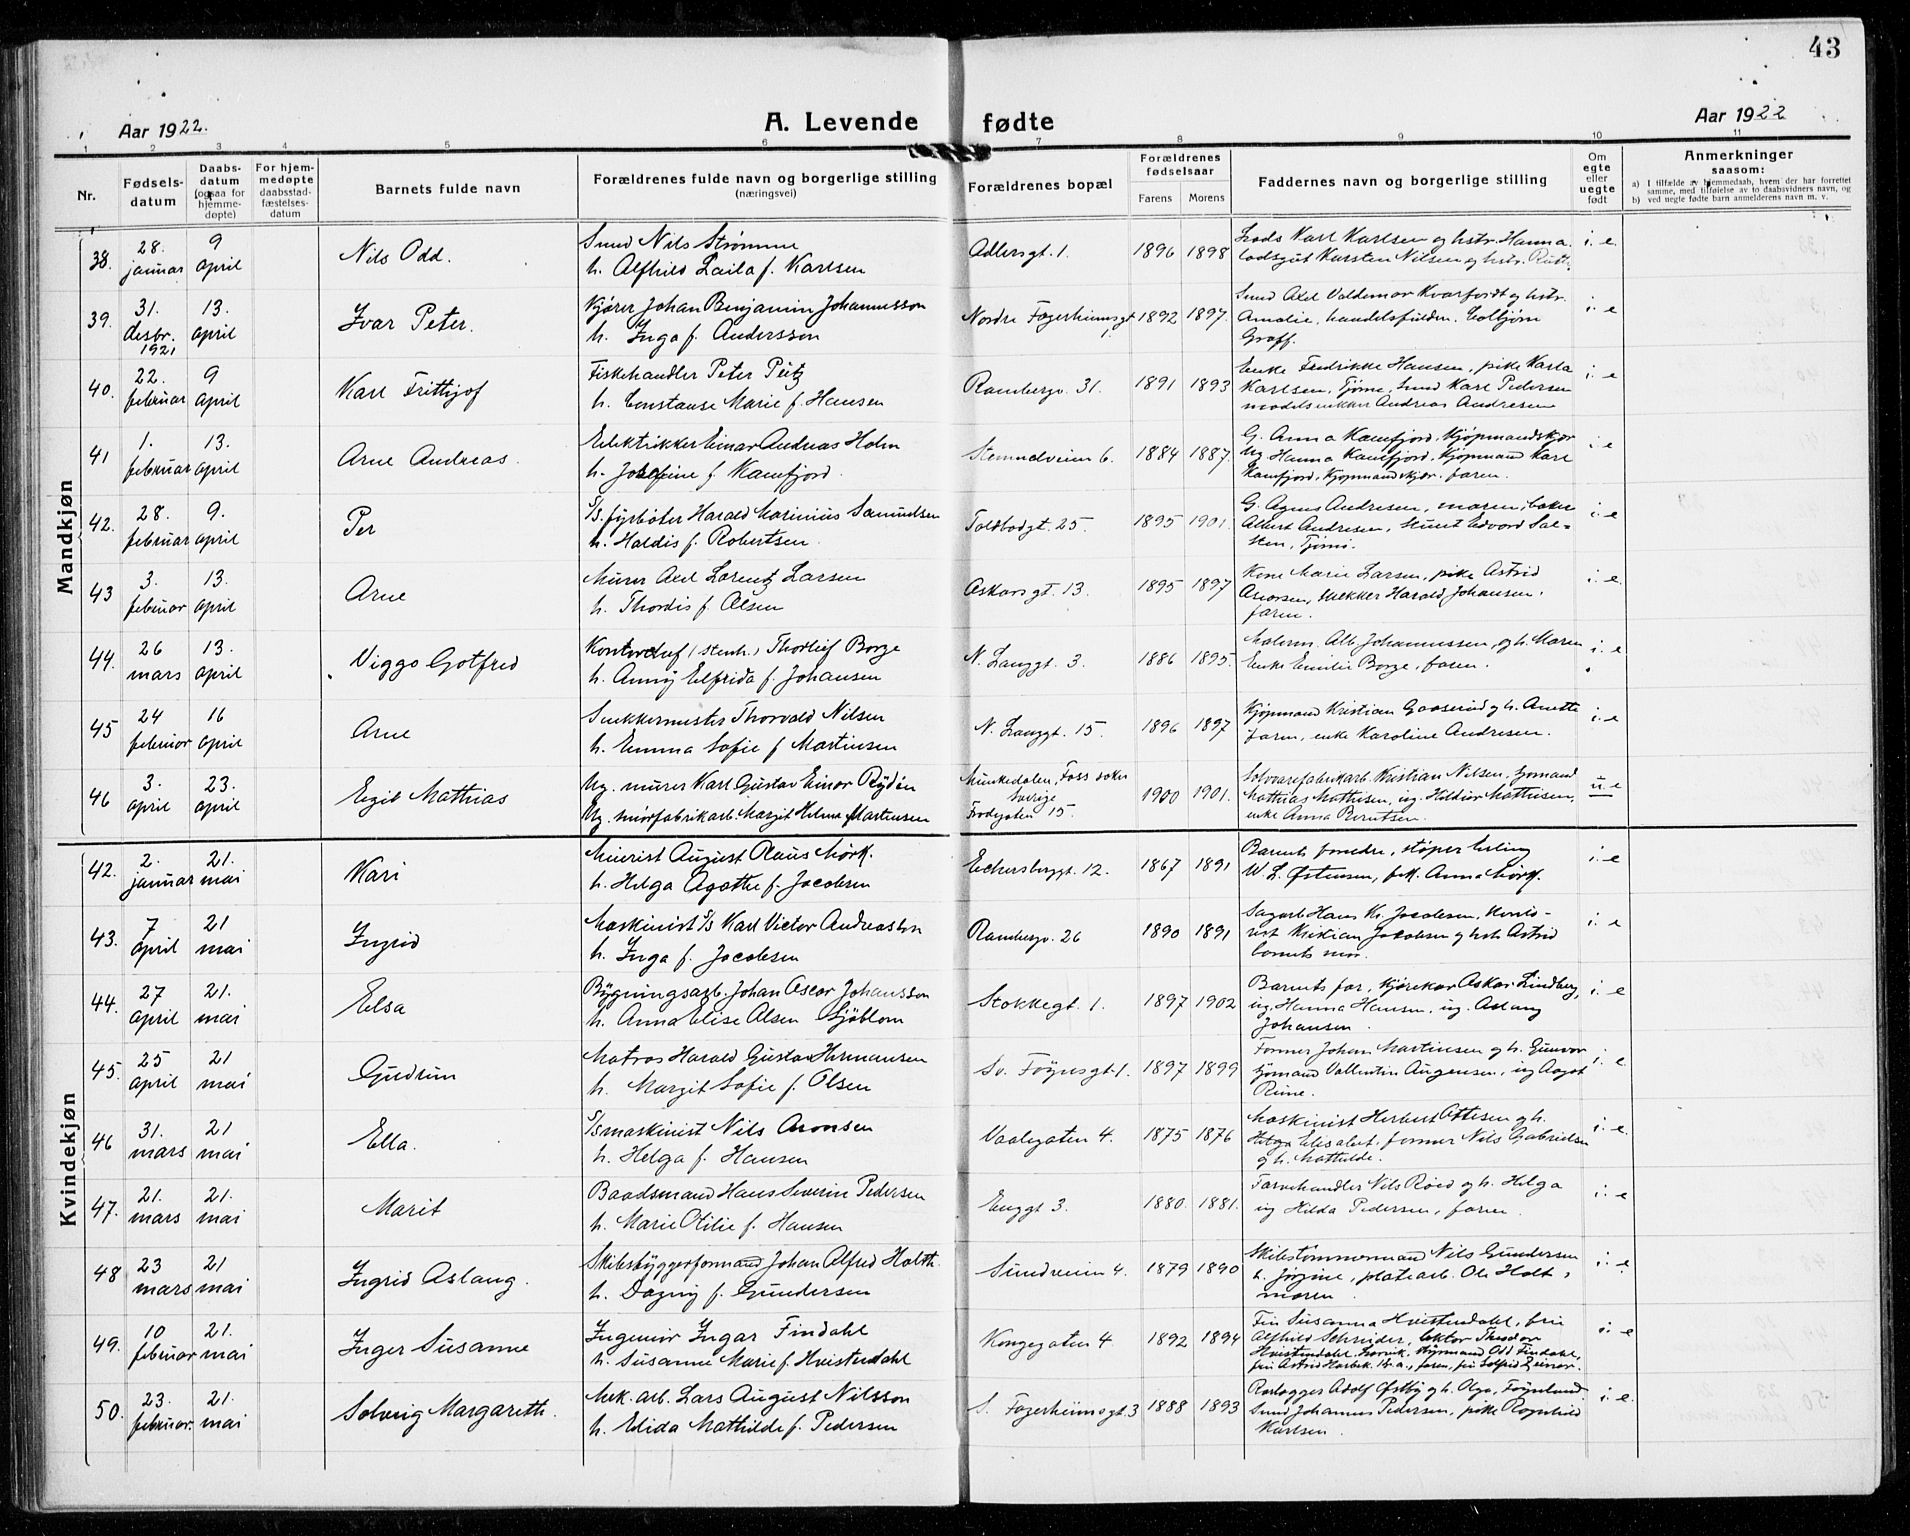 43
Aar 1922.
A. Levende fødte
Aar 1922
1 2 3 4 5 6 7 8 9 10 11
Nr.
Fødselsdatum
Daabsdatum (ogsaa for hjemmedøpte)
For hjemmedøpte daabsstadfæstelsesdatum
Barnets fulde navn
Forældrenes fulde navn og borgerlige stilling
(næringsvei)
Forældrenes bopæl
Forældrenes fødselsaar
Farens Morens
Faddernes navn og borgerlige stilling
Om egte eller uegte født
Anmerkninger
saasom:
a) I tilfælde av hjemmedaab, hvem der har forrettet
samme, med tilføielse av to daabsvidners navn, og
b) ved uegte fødte barn anmelderens navn m. v.
Mandkjøn
38. 28. januar 9 april Nils Odd.
Smed Nils Strømme
h. Alfhild Laila f. Karlsen
Adlersgt. 1. 1896 1898
Lods Karl Karlsen og hstr. Hanna.
lodsgut Karsten Nilsen og hstr. Ruth.
i. e
39. 31. desbr. 1921 13. april Ivar Peter.
Kjører Johan Benjamin Johannesson
h. Inga f. Andersson
Nordre Fogerheimsgt 1. 1892 1897.
Smed Axel Valdemar Kvarfordt og hstr.
Amalie, handelsfuldm. Colbjørn
Graff.
i. e
40. 22. februar 9 april Karl Frittjof
Fiskehandler Peter Peitz
h. Constanse Marie f. Hansen
Rambergv. 31. 1891 1893
Enke Fredrikke Hansen, pike Karla
Karlsen, Tjøme, Smed Karl Pedersen
modelsnekker Andreas Andresen
i. e
41 1. februar 13. april Arne Andreas.
Elektrikker Einar Andreas Holm
h. Josefine f. Kamfjord.
Stenmalveien 6. 1884 1887.
G. Anna Kamfjord, Kjøpmandskjær
Ug Hanna Kamfjord, Kjøpmand Karl
Kamfjord, Kjøpmandskjær. faren.
i. e
42. 28. februar 9. april Per
S/S. fyrbøter Harald Marinius Samuelsen
h. Haldis f. Robertsen.
Toldbodgt. 25. 1895 1901.
G. Agnes Andresen, moren, baker
Albert Andresen, Edvard Salsten, Tjømø.
i. e
43 3. februar 13. april Arne
Murer Axel Lorentz Larsen
h. Thordis f. Olsen
Oskarsgt. 13. 1895 1897
Kone Marie Larsen, pike Astrid
snekker Harald Johansen.
faren.
i. e.
44. 26 mars 13. april Viggo Gotfred
Kontorchef (stenh.) Thorleif Borge
h. Anny Elfrida f. Johansen
N. Langgt. 3. 1886 1895.
Malerm. Alb. Johannessen, og h. Maren
Enke Emilie Borge, faren.
i. e
45 24 februar 16 april Arne
Snekkermester Thorvald Nilsen
h. Emma Sofie f Martinsen
N. Langgt. 15. 1896 1897
Kjøpmand Kristian Gaaserud og h. Anette
faren, enke Karoline Andresen.
i. e
46 3. april 23. april Egil Mathias
Ug. murer Karl Gustav Einar Rydén
Ug. smørfabrikarb. Margit Helma Martinsen
Munkedalen, Foss sokn
Sverige
Frodegaten 15. 1900 1901.
Kristian Nilsen, sjømand
Mathias Mathisen, ug. Hildur Mathisen,
enke Anna Berntsen.
u. e
Kvindekjøn
42. 2. januar 21. mai Kari
Maserist August Claus Mørk.
h. Helga Agathe f. Jacobsen
Eckersbergt. 12. 1867 1891
Barnets forældre, støper Erling
W. L. Østensen, frk. Anna Mørk.
i. e
43. 7 april 21 mai Ingrid
Maskinist S/S Karl Victor Andreassen
h. Inga f. Jacobsen
Rambergv. 26 1890 1891
Sagarb Hans Kr. Jacobsen, Kontorist Kristian Jacobsen og hstr Astrid
barnets mor.
i. e
44. 27 april 21. mai Elsa
Bygningsarb. Johan Oscar Johansson
h. Anna Elise Olsen Sjöblom
Stokkegt. 1. 1897 1902
Barnets far, kjørekar Oskar Lindberg,
ug. Hanna Hansen, ug. Aslaug
Johansen.
i. e
45. 25 april 21 mai Gudrun
Matros Harald Gustav Hermansen
h. Margit Sofie f. Olsen
Sv. Føynsgt. 1. 1897 1899
Former Johan Martinsen og h. Gunvor
sjømand Vallentin Augensen, ug Aagot
Rime.
i. e
46 31. mars 21 mai Ella.
S/Smaskinist Nils Aronsen
h. Helga f. Hansen
Vaalegaten 4. 1875 1876
Maskinist Herbert Ottesen og h.
Helga Elisabet, former Nils Gabrielsen
og h. Mathilde.
i. e.
47. 21. mars 21. mai Marit
Baadsmand Hans Severin Pedersen
h. Marie Otilie f. Hansen
Enggt 3. 1880. 1881.
Farvehandler Nils Røed og h. Helga
ug Hilda Pedersen, faren.
i. e
48 23 mars 21 mai Ingrid Aslaug.
Skibsbyggerformand Johan Alfred Holth.
h. Dagny f. Gundersen
Sundveien 4. 1879 1890
Skibstømmermand Nils Gundersen
h. Jørgine, platearb. Ole Holt,
moren.
i. e
49. 10 februar 21. mai Inger Susanne
Ingeniør Ingar Findahl
h. Susanne Marie f. Hvistendahl
Kongegaten 4 1892 1894
Fru Susanna Hvistendahl, fru
Alfhild Schneider, lektor Theodor
Hvistendahl, Larvik, Styrmand Odd Findahl,
frk Astrid Kr.a., faren, frk Solfrid
i. e
50. 23. februar. 21. mai Solveig Margareth.
Mek. arb. Lars August Nilsson
h. Elida Mathilde f. Pedersen
S. Fogerheimsgt. 3 1888 1893
Rørlægger Adolf Østby og h. Olga, Føynland
Smed Johannes Pedersen, pike Ragnhild
Karlsen.
i. e.